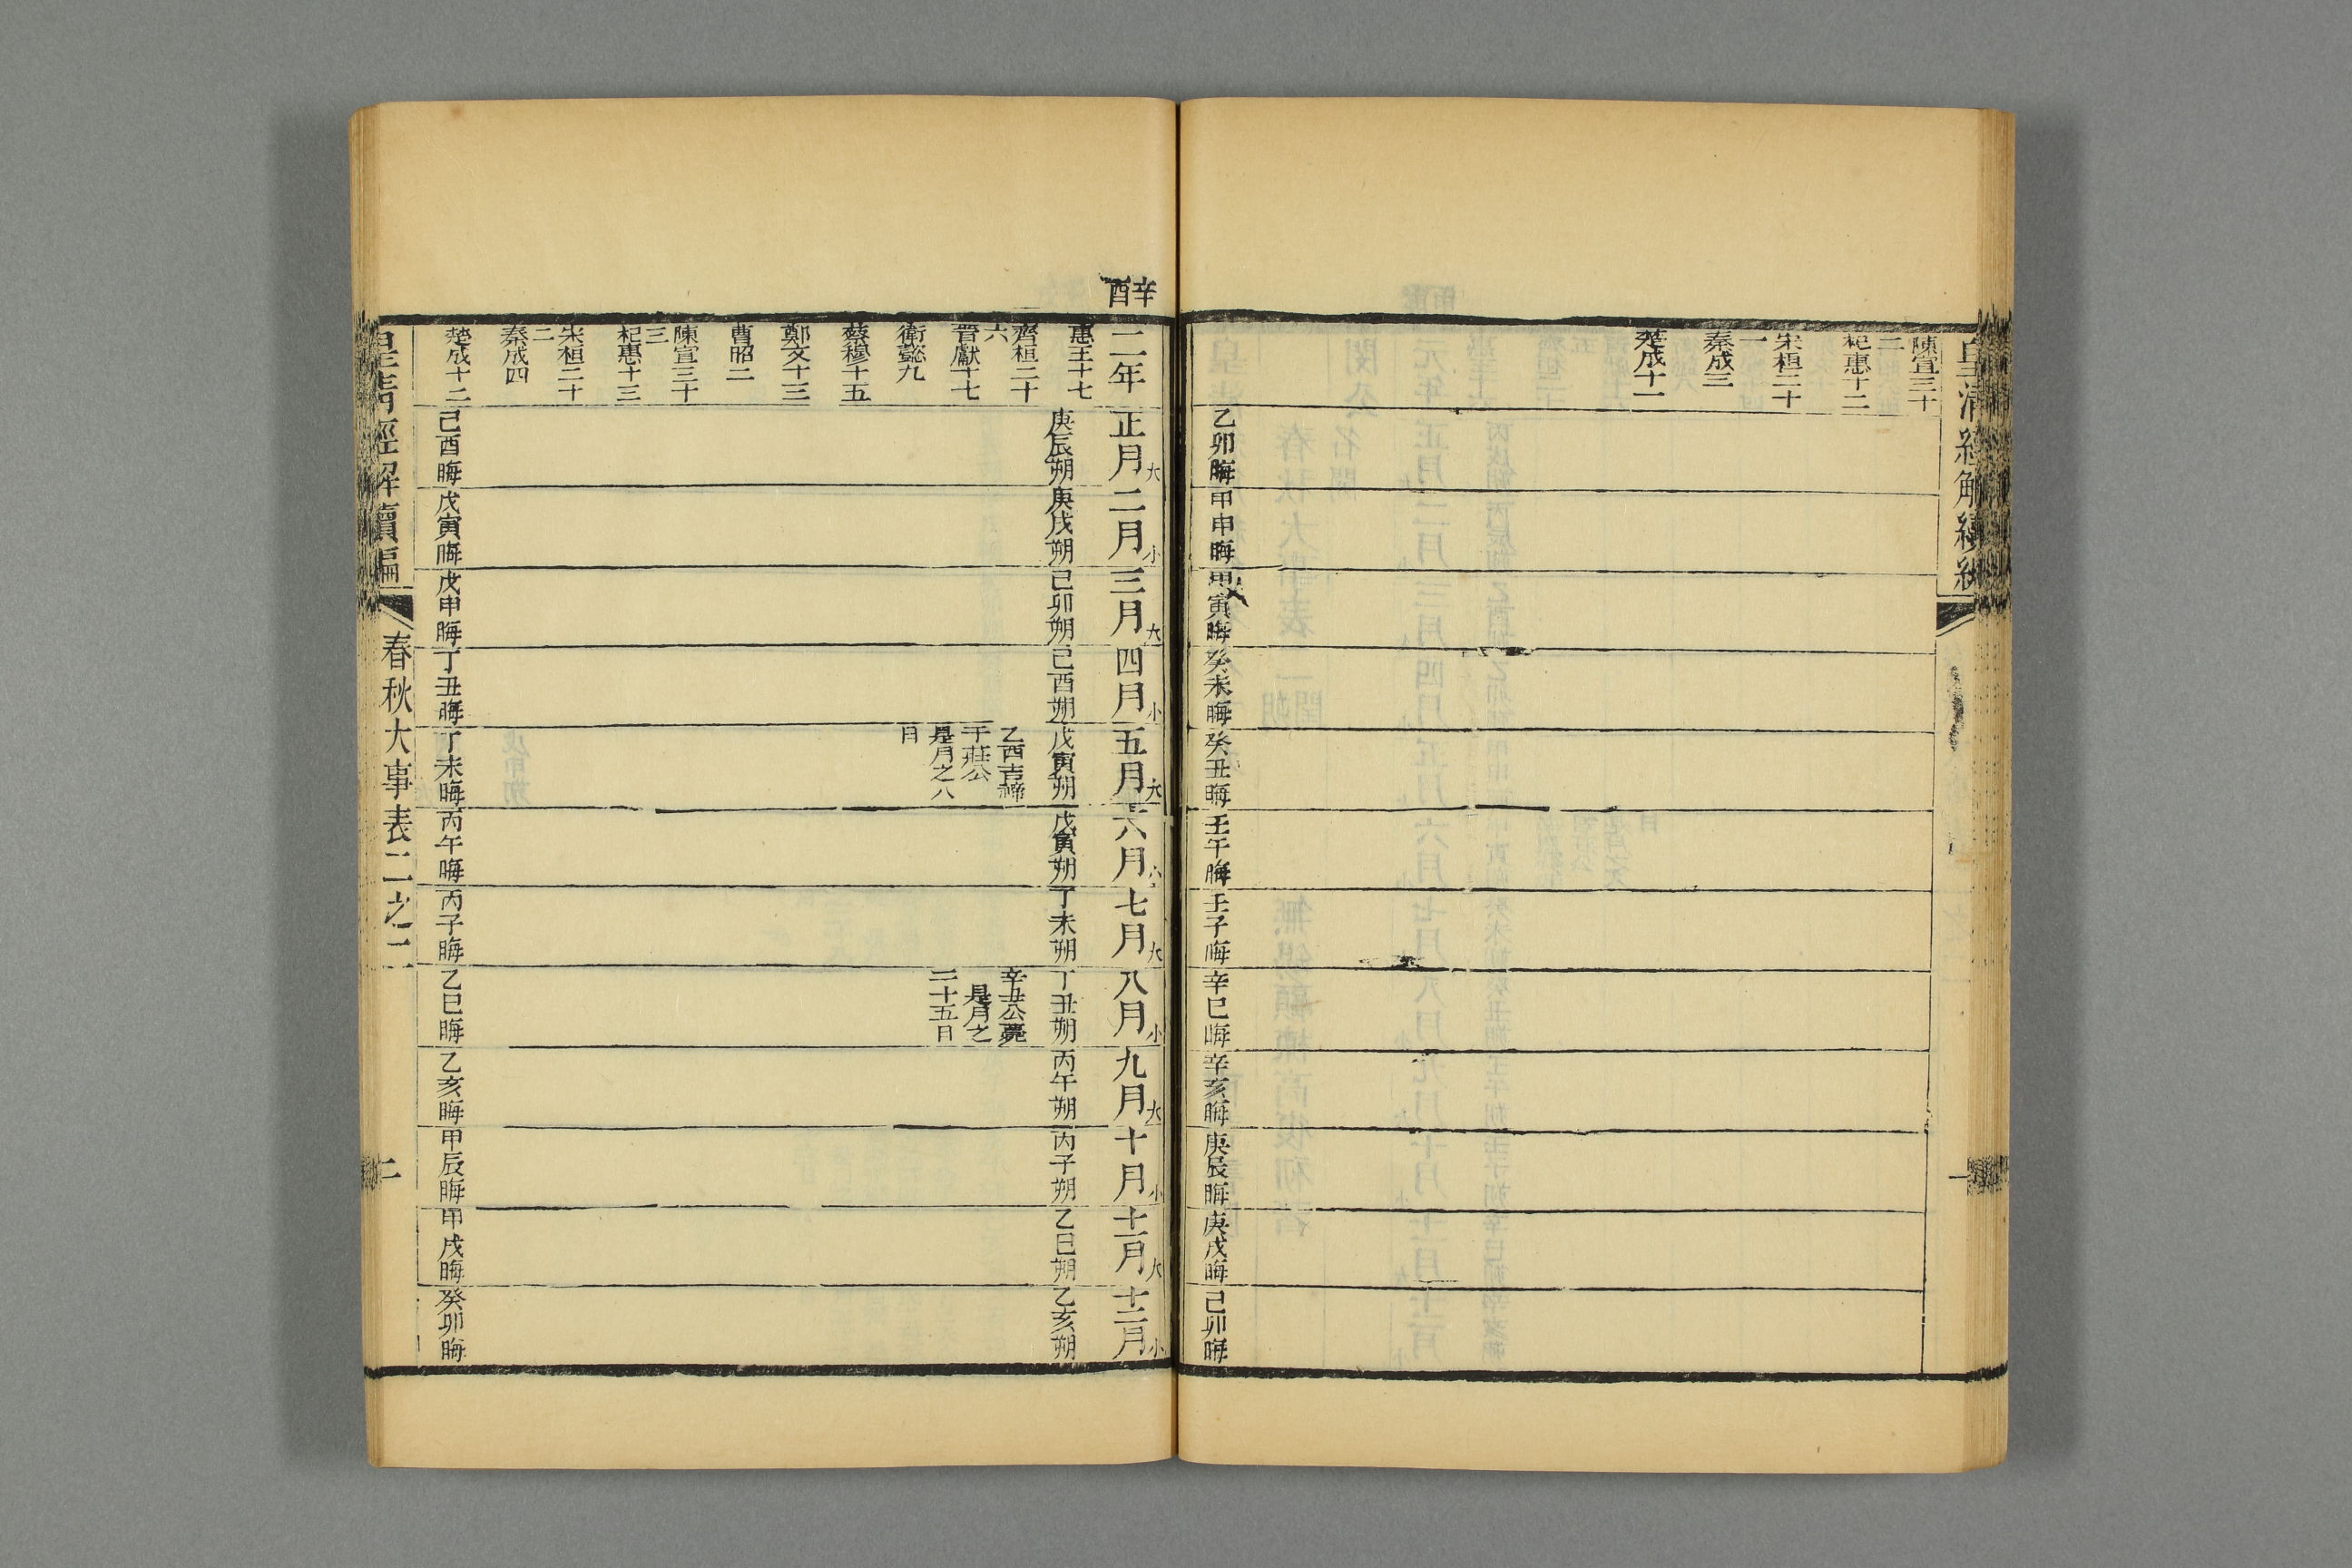 皇清經解續編
一
陳宣三十
二
杞惠十二
宋桓二十
一
秦成三
楚成十一
乙卯晦
甲申晦
甲寅晦
癸未晦
癸丑晦
壬午晦
壬子晦
辛巳晦
辛亥晦
庚辰晦
庚戌晦
己卯晦
辛酉
二年
正月大
二月小
三月大
四月小
五月大
六月小
七月大
八月小
九月大
十月小
十一月大
十二月小
惠王十七
齊桓二十
六
晉獻十七
衛懿九
蔡穆十五
鄭文十三
曹昭二
陳宣三十
三
杞惠十三
宋桓二十
二
秦成四
楚成十二
庚辰朔
庚戌朔
己卯朔
己酉朔
戊寅朔
戊寅朔
丁未朔
丁丑朔
丙午朔
丙子朔
乙巳朔
乙亥朔
乙酉吉禘
于莊公
是月之八
日
辛丑公薨
是月之
二十五日
己酉晦
戊寅晦
戊申晦
丁丑晦
丁未晦
丙午晦
丙子晦
乙巳晦
乙亥晦
甲辰晦
甲戌晦
癸卯晦
皇清經解續編
春秋大事表二之二
二